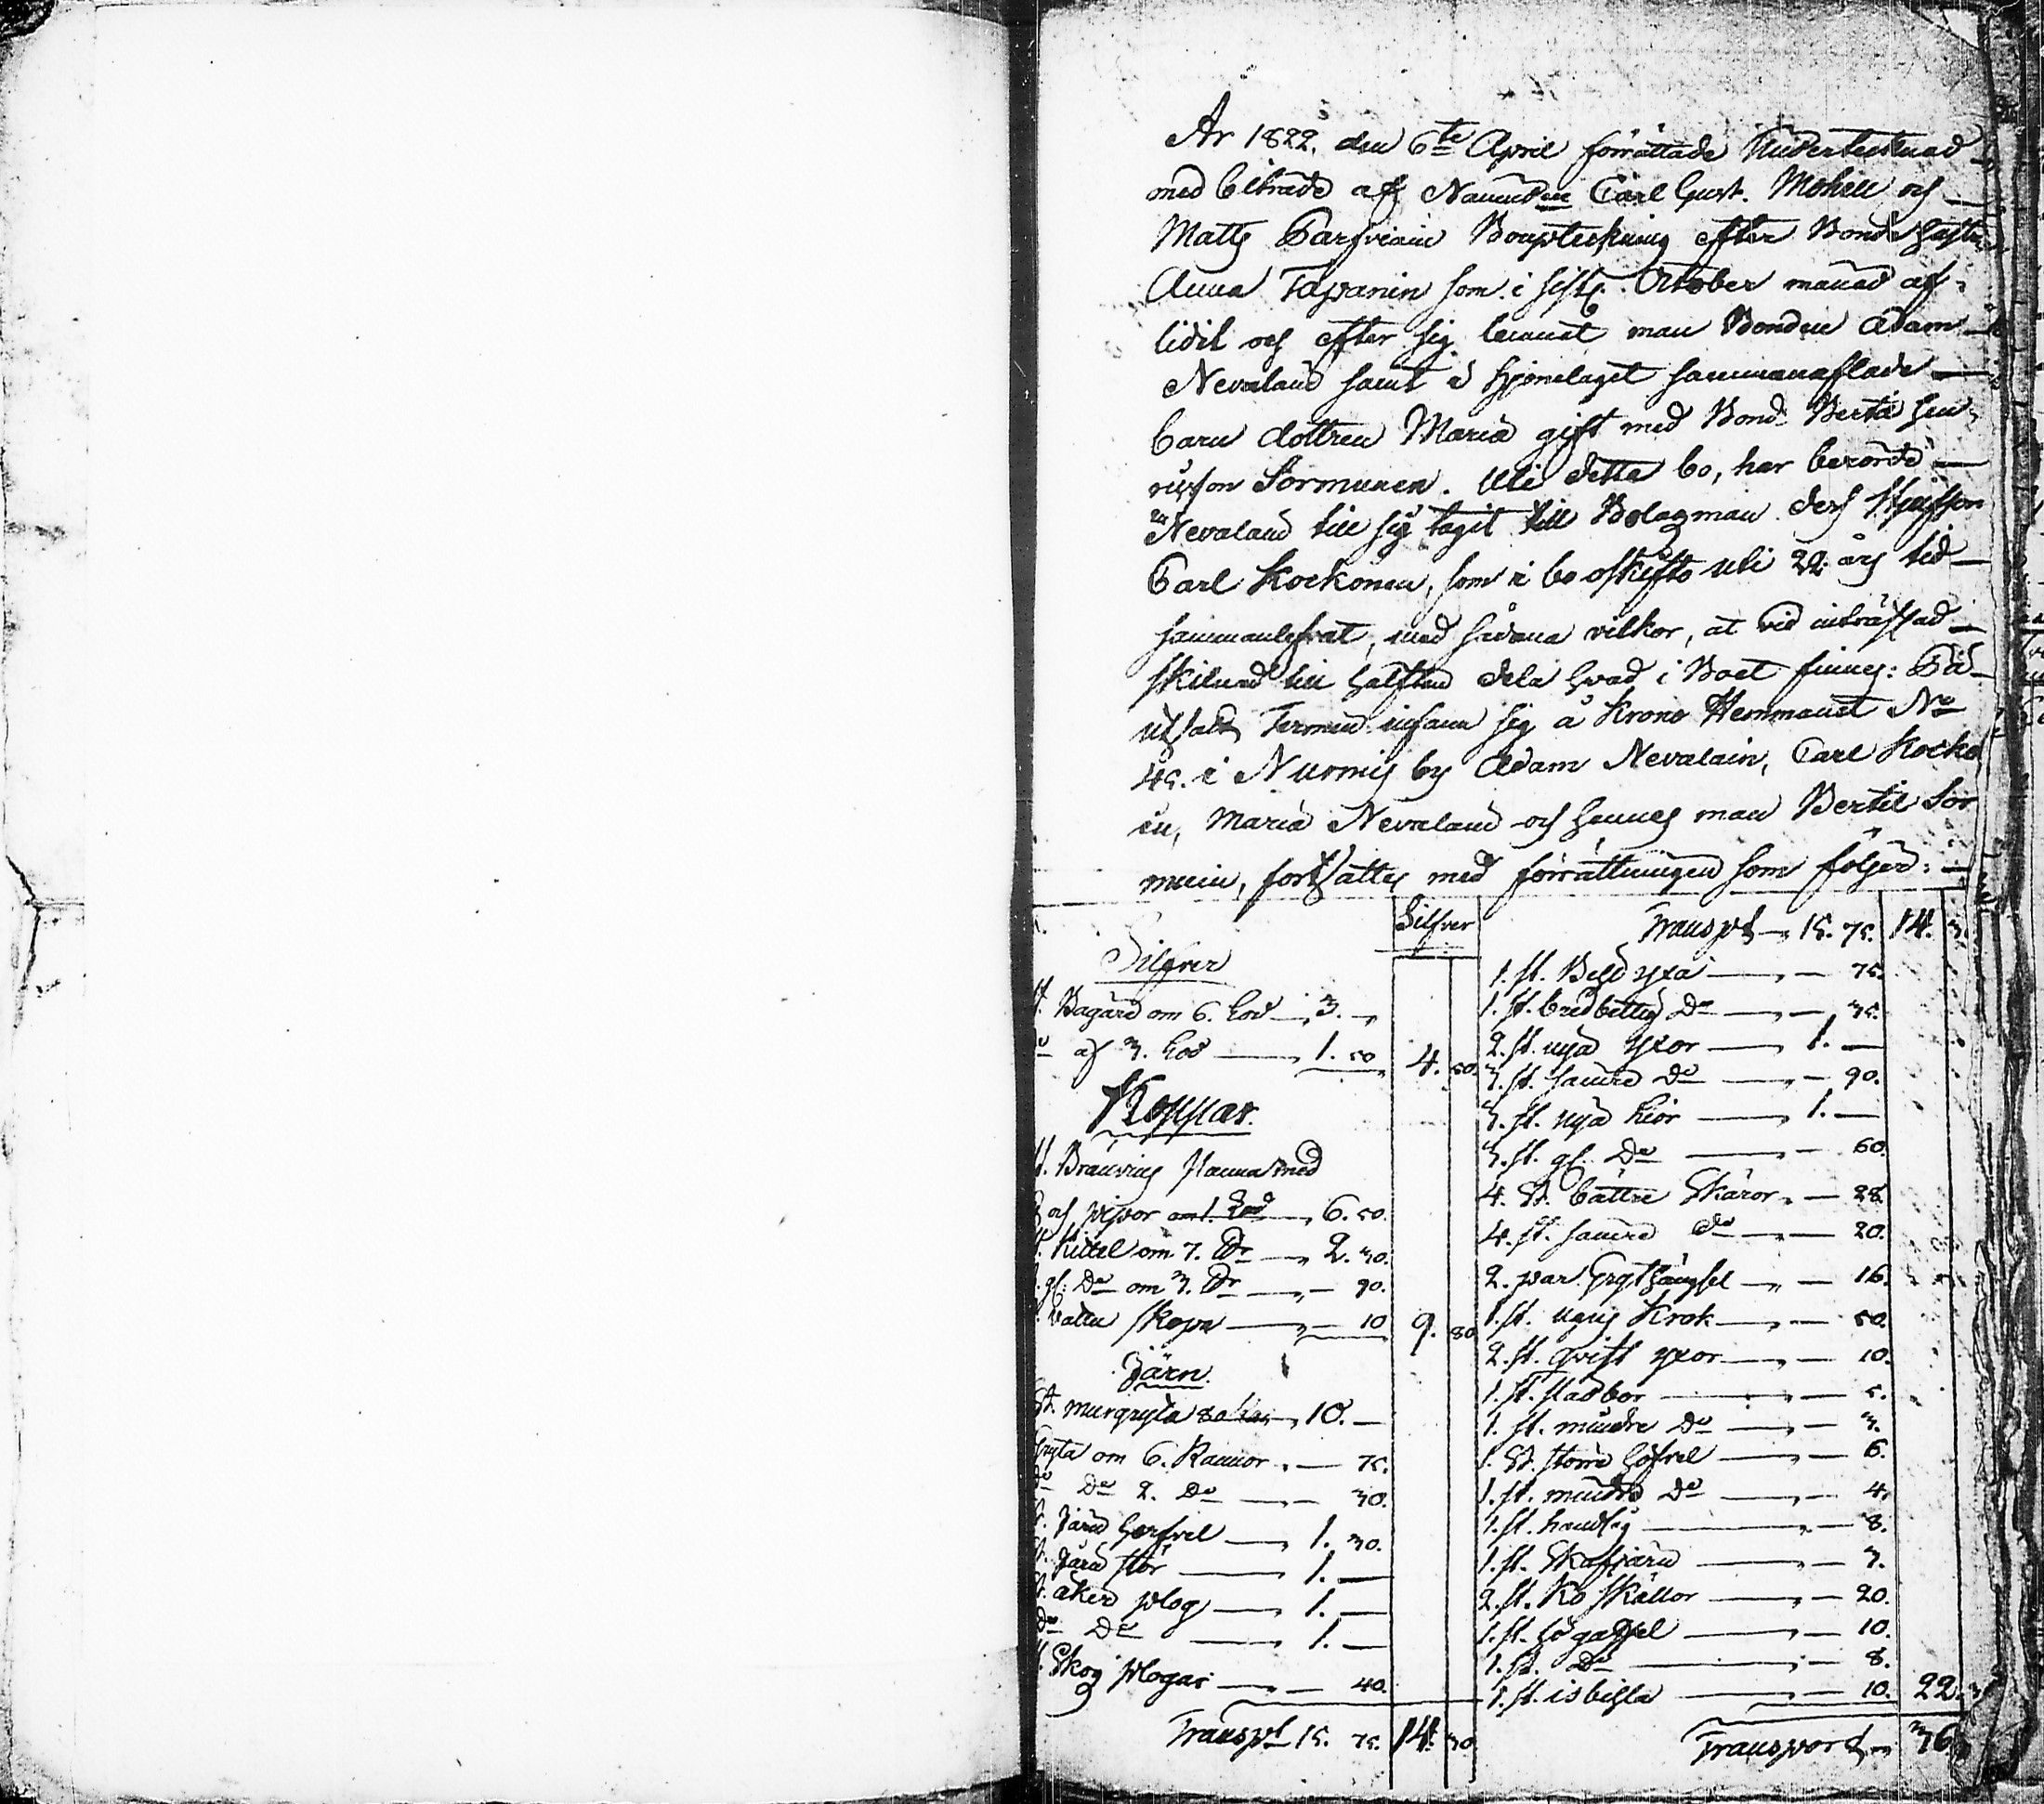 År 1822. den 6te April förrättade Undertecknad
med biträde af Nämndm Carl Gust. Mohell och
Matts Parfviain Bouptekning efter Bonde hustr
Anna Tapanin som i sistl. October månad af-
lidit och efter sig lemnat man Bonden Adam
Nevalain samt i hjonelaget sammanaflade
barn dottren Maria gift med Bond. Bertil Hen
ricsson Sormunen. Uti detta bo, har berörde
Nevalain till sig tagit till Bolagman dess Stjufson
Carl Kockonen, som i bo oskifto uti 22 års tid
sammanlefvat, med sådana vilkor, at vid inträffad
skilnad till hälften dela hvad i Boet finnes: På
utsatt Termin infann sig å Krono Hemmanet No
45. i Nurmis by Adam Nevalain, Carl Kocko
en, Maria Nevalain och hennes man Bertil Sor
munen, fortsattes med förrättningen som följer:
Silfver
Silfver
st. Bägare om 6. Lod 3. —
af 3. Lod 1. 50 4. 50.
Koppar.
st. Bränvins Panna med
och pipor 6. 50.
Kittel om 7. 2. 30.
gl: Do om 3. — 90.
vattu skopa — 10 9. 80
Järn.
St. murgryta 10. —
Gryta om 6. Kannor — 75.
Do Do 2. Do — 30.
st. Järn harfvel 1. 30.
st. Järn stör 1. —
st. åker plog 1. —
Do Do 1. —
Skog plogar — 40.
Transpt 15. 75. 14. 30.
Transpt 15. 75. 14. 3
1. st. Bild yxa — 75.
1. st. bredbettig Do — 35.
2. st. nya yxor 1. —
3. st. sämre Do — 90.
3. st. nya lior 1. —
3. st. gl. Do — 60.
4. St. bättre Skäror — 28.
4. st. sämre Do — 20.
2. par Grythängsel — 16.
1. st. ugns Krok — 50.
2. st. qvist yxor — 10.
1. st. stadbor — 5.
1. st. mindre Do — 3.
1. St. större höfvel — 6.
1. st. mindre Do — 4.
1. st. handsåg — 8.
1. st. Skafjärn — 3.
2. st. Ko skällor — 20.
1. st. högaffel — 10.
1. st. Do — 8.
1. st. isbilla — 10. 22.
Transport 36